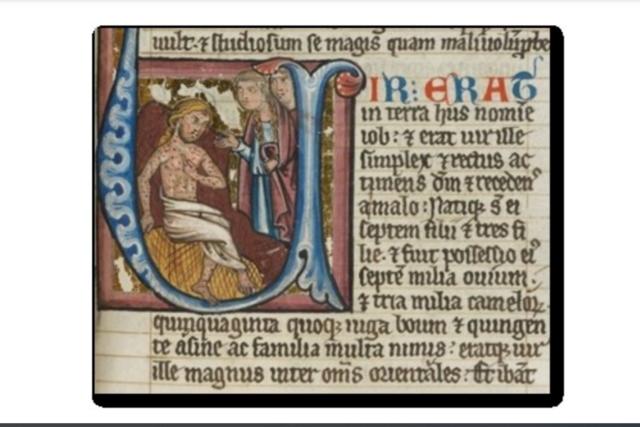 uult· ⁊ studiosum se magis quam maliuolum probe
VIR: ERAT
in terra hus nomīe
iob: ⁊ erat uir ille
simplex ⁊ rectus ac
timens dm̄ ⁊ recedens
a malo: Natiq; st̄ ei
septem filii ⁊ tres fi
lie. ⁊ fuit possessio ei᷒
septē milia ouium:
⁊ tria milia cameloꝝ.
quinquaginta quoq; iuga boum ⁊ quingen
te asine ac familia multa nimis: eratq; uir
ille magnus inter om̄s orientales: Et ibāt